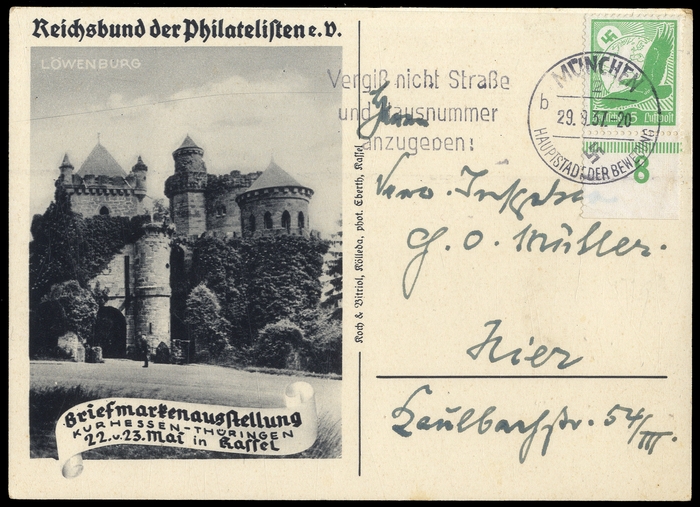 Reichsbund der Philatelisten e.V.
LÖWENBURG
Briefmarkenausstellung
KURHESSEN-THÜRINGEN
22. u. 23. Mai in Kassel
Koch & Bitriol, Kölleda, phot. Eberth, Kassel
Vergiß nicht Straße
und Hausnummer
anzugeben!
MÜNCHEN
b 29.9.37.-20
HAUPTSTADT DER BEWEGUNG
5 Luftpost
8
Herrn
G. O. Müller.
Hier
Kaulbachstr. 54/III.